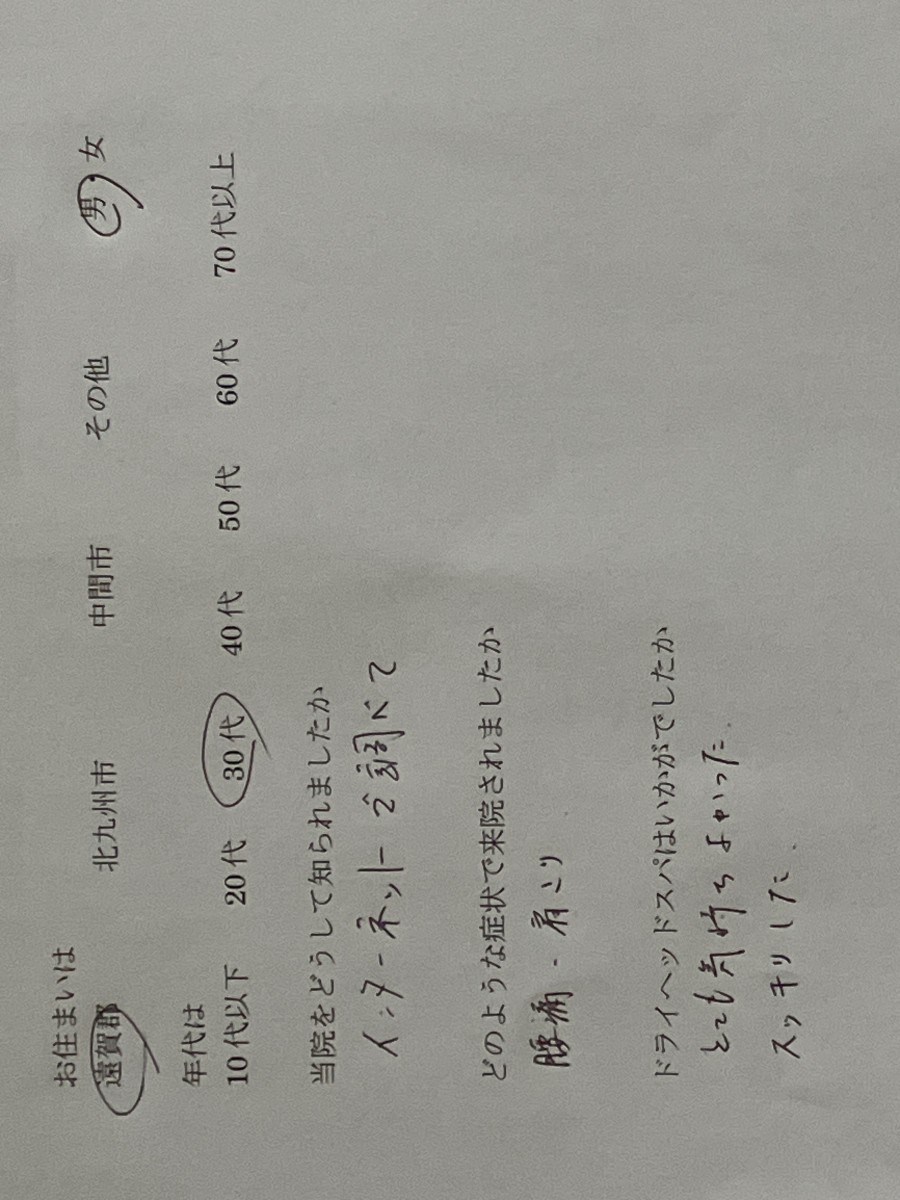 お住まいは
遠賀郡 北九州市 中間市 その他 男・女
年代は
10代以下 20代 30代 40代 50代 60代 70代以上
当院をどうして知られましたか
インターネットで調べて
どのような症状で来院されましたか
腰痛・肩こり
ドライヘッドスパはいかがでしたか
とても気持ちよかった.
スッキリした.